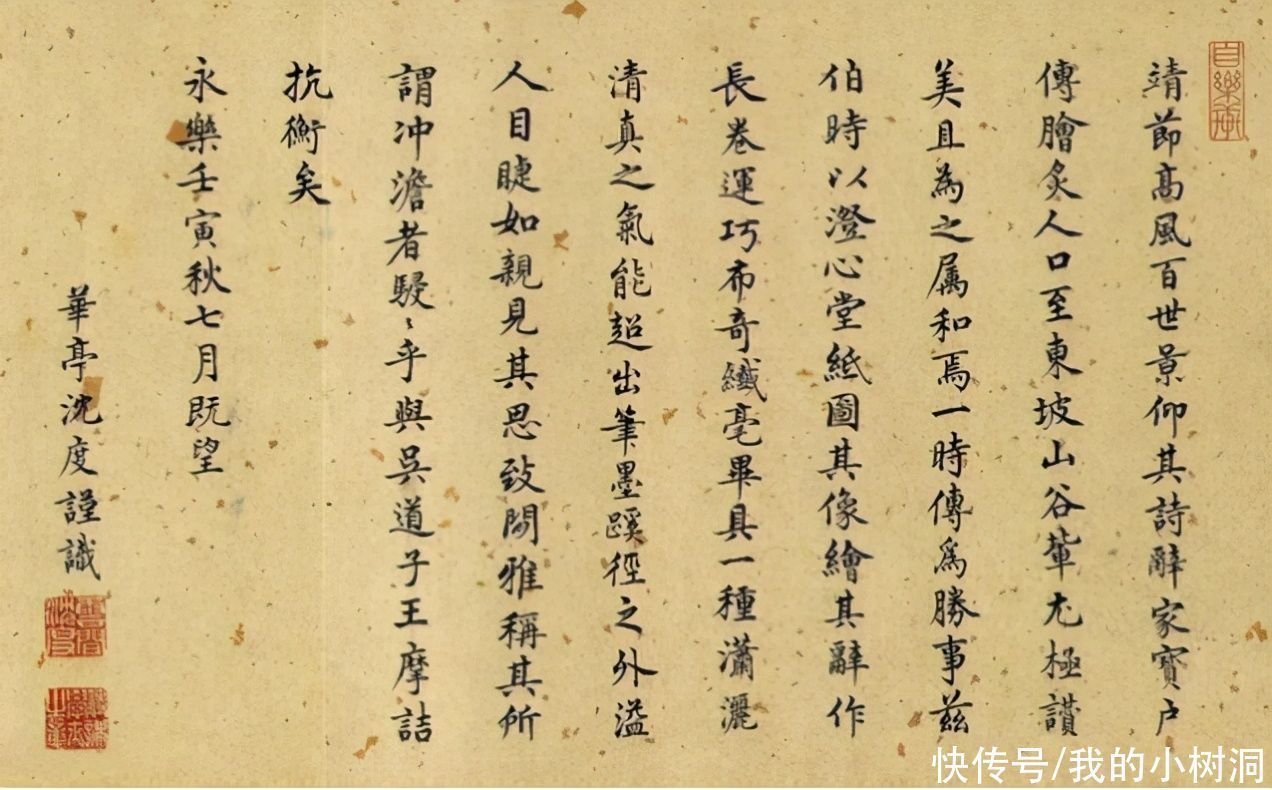 靖節高風百世景仰其詩辭家寶戶
傳膾炙人口至東坡山谷輩尤極讚
美且為之屬和焉一時傳爲勝事茲
伯時以澄心堂紙圖其像繪其辭作
長卷運巧布奇纖毫畢具一種瀟灑
清真之氣能超出筆墨蹊徑之外溢
人目睫如親見其思致閒雅稱其所
謂冲澹者駸〻乎與吳道子王摩詰
抗衡矣
永樂壬寅秋七月既望
華亭沈度謹識
自樂亭
快传号/我的小树洞